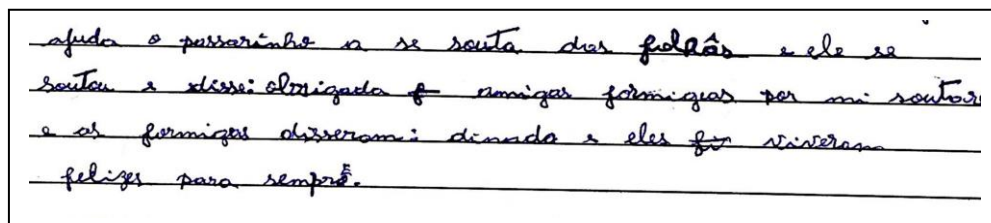 ajuda o passarinho a se souta das folhâs e ele se
soutou e disse: obrigada f amigas formigas por mi soutare
e as formigas disseram: dinada e eles fi viveram
felizes para sempre.